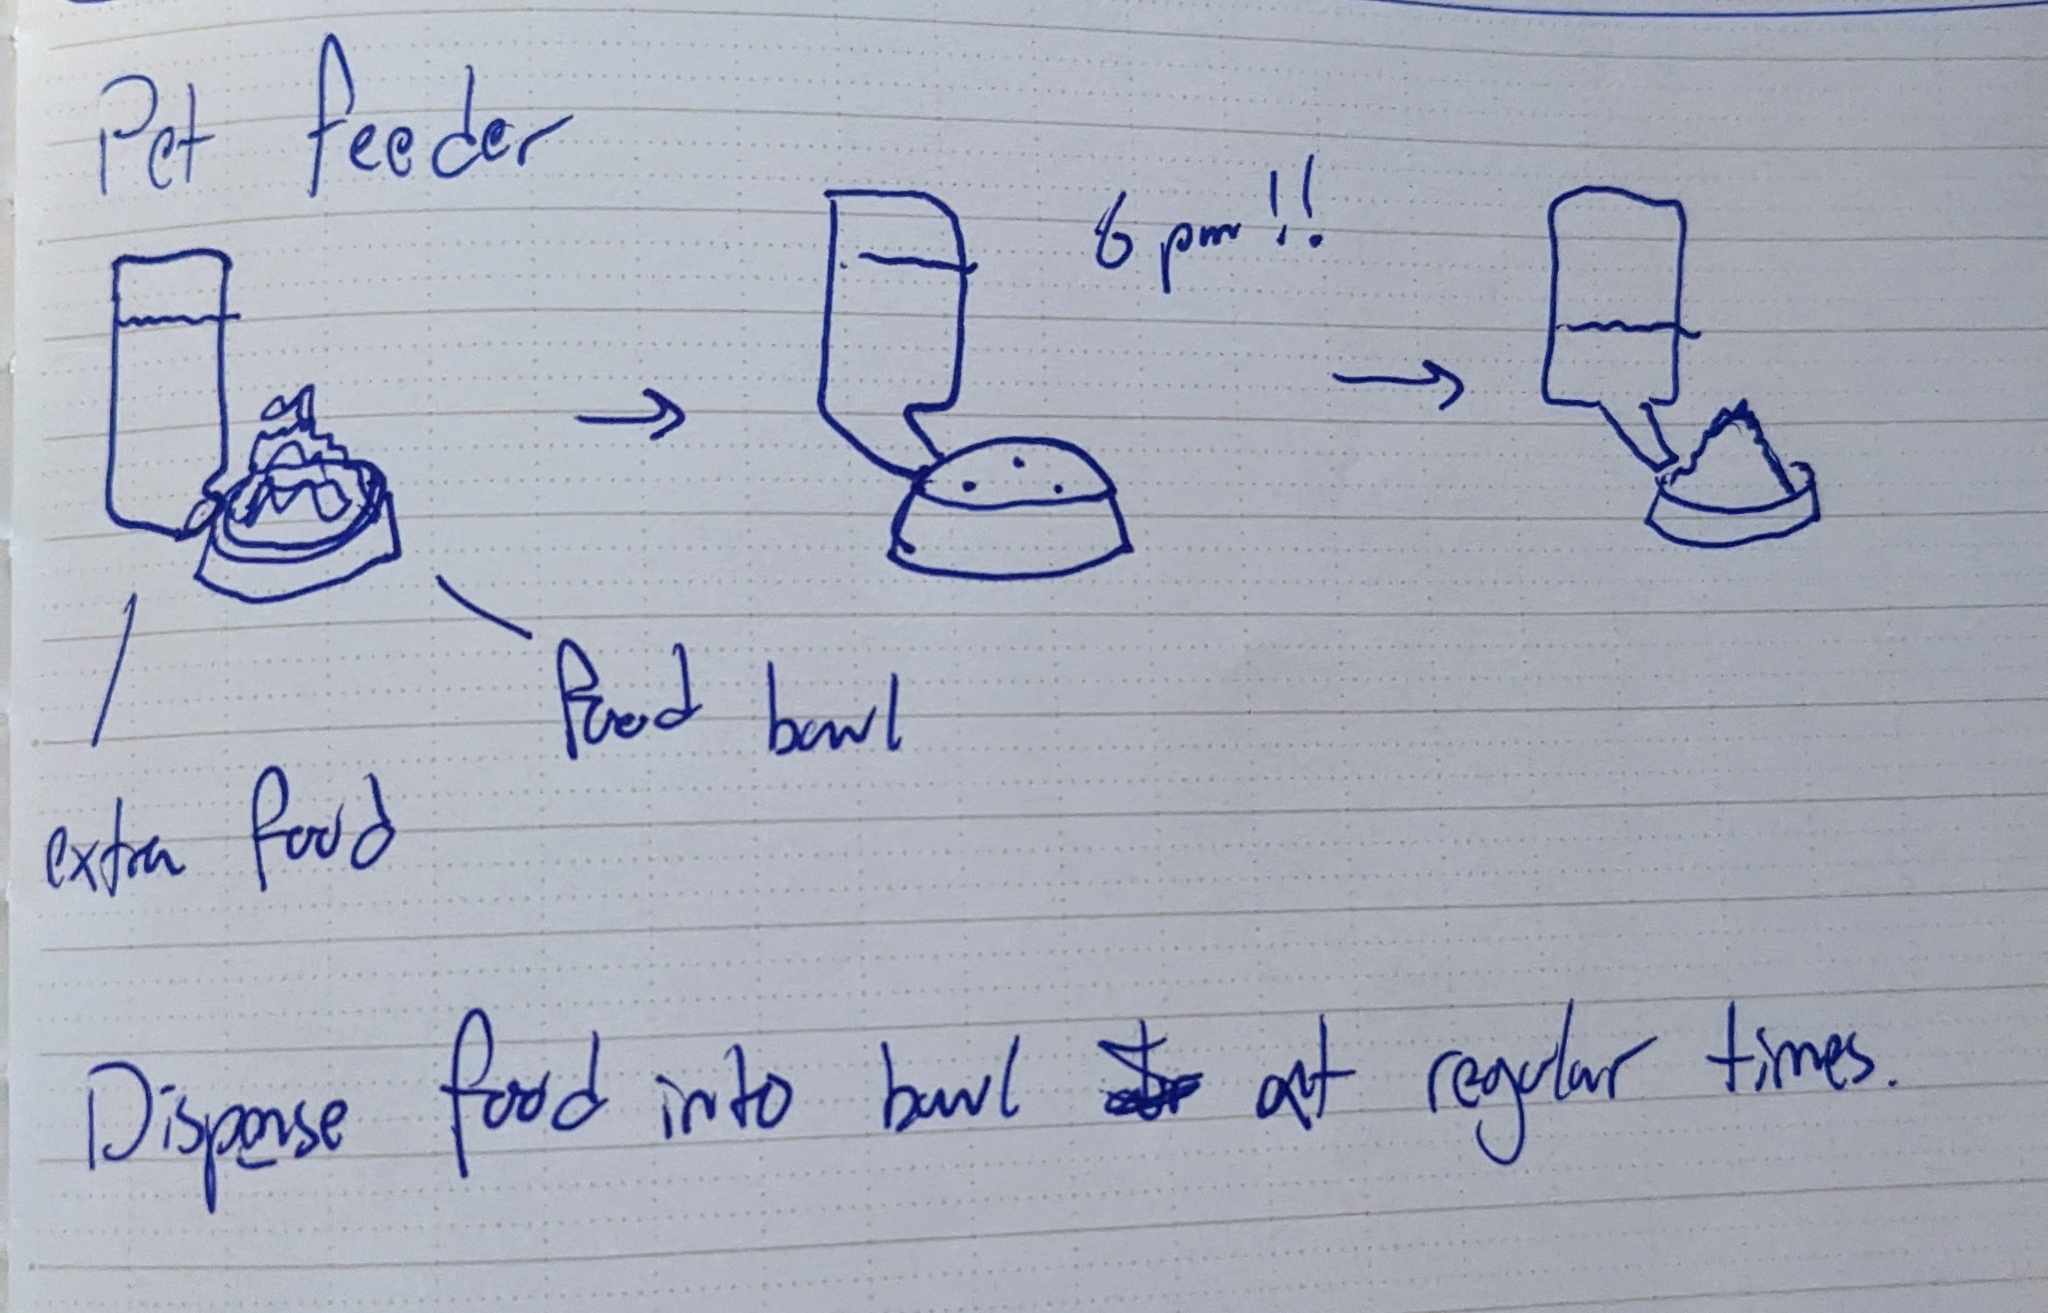 Pet feeder
6 pm!!
food bowl
extra food
Dispense food into bowl at regular times.